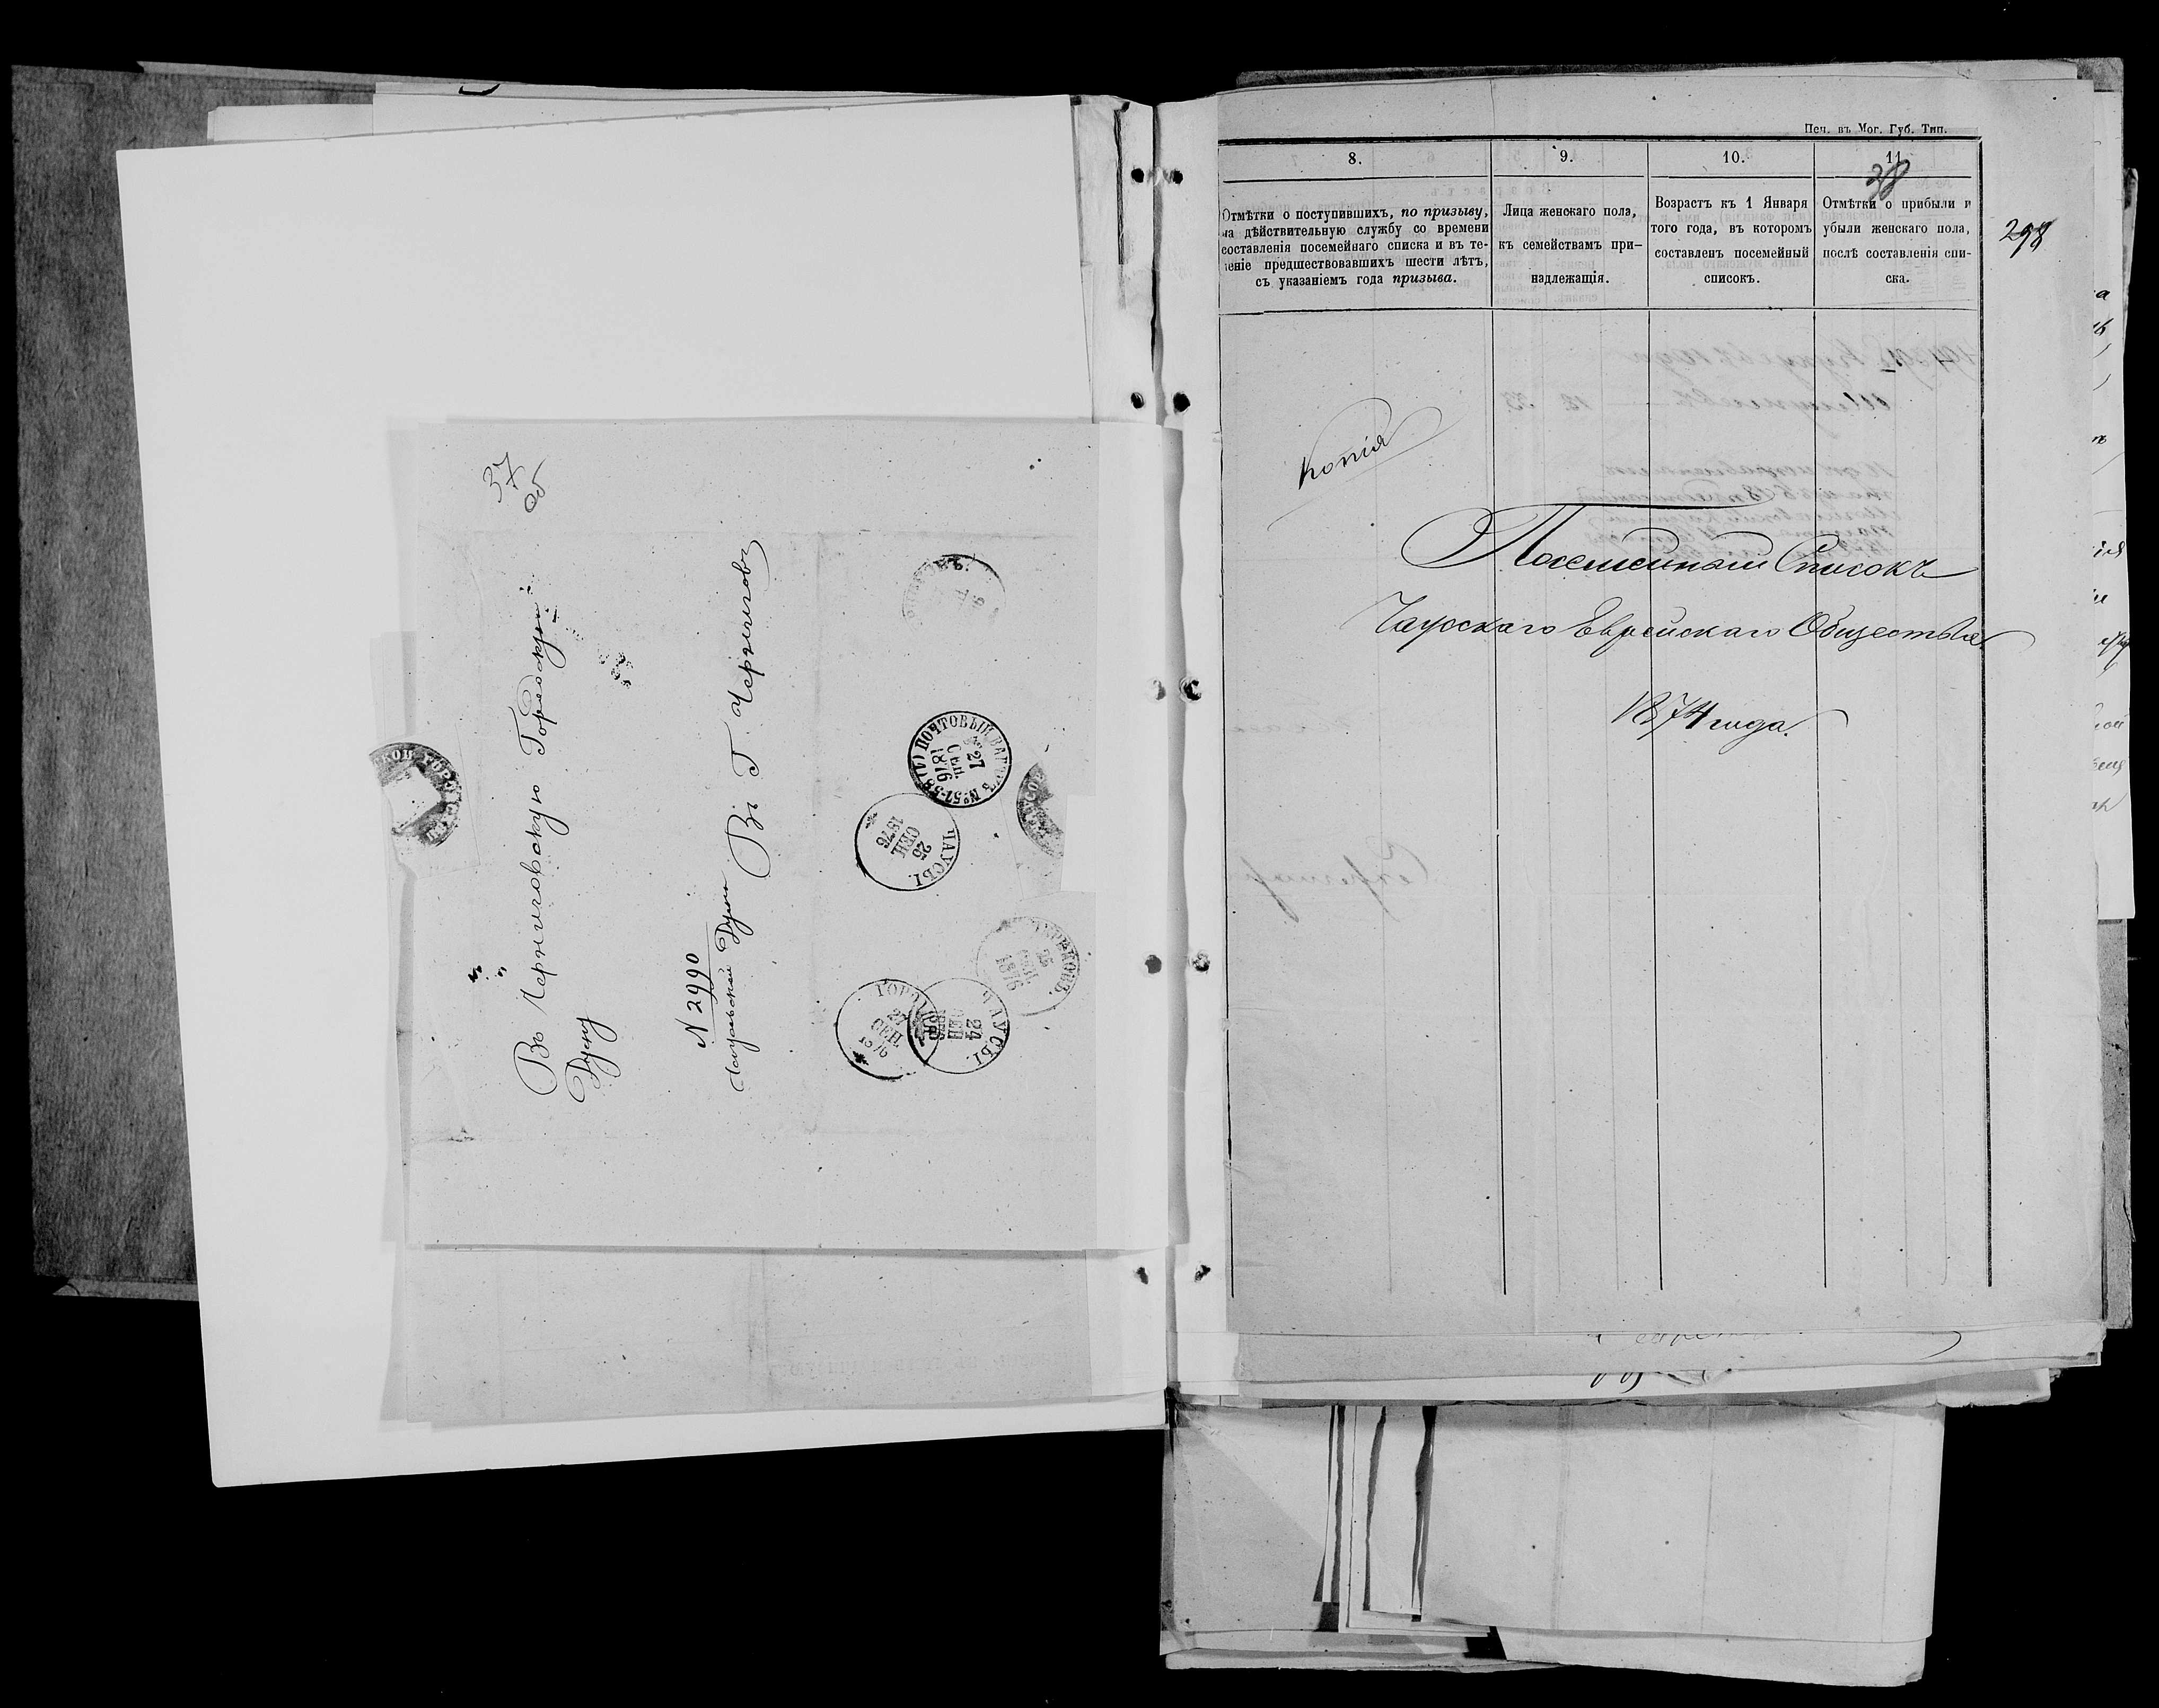 37
об
Въ Черниговскую Городскую
Думу
N 2990
Въ Г. Черниговъ
ПОЧТОВЫЙ ВАГ-ЪN°57-58 (V)
27
СЕН
1876
ЧАУСЫ.
25
СЕН
1876
ЧАУСЫ.
24
СЕН
1876
Печ. въ Мог. Губ. Тип.
8.
9.
10.
11
38
298
Отмѣтки о поступившихъ, по призыву,
на дѣйствительную службу со времени
составленія посемейнаго списка и въ те-
ченіе предшествовавшихъ шести лѣтъ,
съ указаніемъ года призыва.
Лица женскаго пола,
къ семействамъ при-
надлежащія.
Возрастъ къ 1 Января
того года, въ которомъ
составленъ посемейный
списокъ.
Отмѣтки о прибыли и
убыли женскаго пола,
послѣ составленія спи-
ска.
Копія
Посемейный Списокъ
Чаусскаго Еврейскаго Общества
1874 года.